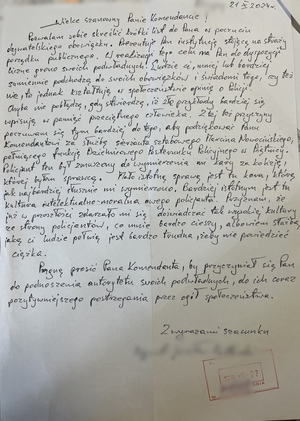 21 X 2024r.
Wielce szanowny Panie Komendancie!
Pozwalam sobie skreślić krótki list do Pana w poczuciu
obywatelskiego obowiązku. Prezentuje Pan instytucję stojącą na straży
porządku publicznego. W realizacji tego celu ma Pan do dyspozycji
liczne grono swoich podwładnych. Ludzie ci, mniej lub bardziej
sumiennie podchodzą do swoich obowiązków i świadomi tego, czy też
nie, to jednak kształtują w społeczeństwie opinię o Policji.
Chyba nie pobłądzę, gdy stwierdzę, iż złe przykłady bardziej się
wpisują w pamięć przeciętnego człowieka. Z tej też przyczyny
poczuwam się tym bardziej do tego, aby podziękować Panu
Komendantowi za służbę sierżanta sztabowego Marcina
pełniącego funkcję Dzielnicowego Posterunku Policyjnego w
Policjant ten był zmuszony do wymierzenia mi kary za kolizję,
której byłem sprawcą. Mało istotną sprawą jest tu kara, którą
jak najbardziej słusznie mi wymierzono. Bardziej istotnym jest tu
kultura intelektualno-moralna owego policjanta. Przyznam, że
już w przeszłości zdarzało mi się doświadczać tak wysokiej kultury
ze strony policjantów, co mnie bardzo cieszy, albowiem służba,
jaką ci ludzie pełnią jest bardzo trudna, żeby nie powiedzieć
ciężka.
Pragnę prosić Pana Komendanta, by przyczyniał się Pan
do podnoszenia autorytetu swoich podwładnych, do ich coraz
pozytywniejszego postrzegania przez ogół społeczeństwa.
Z wyrazami szacunku